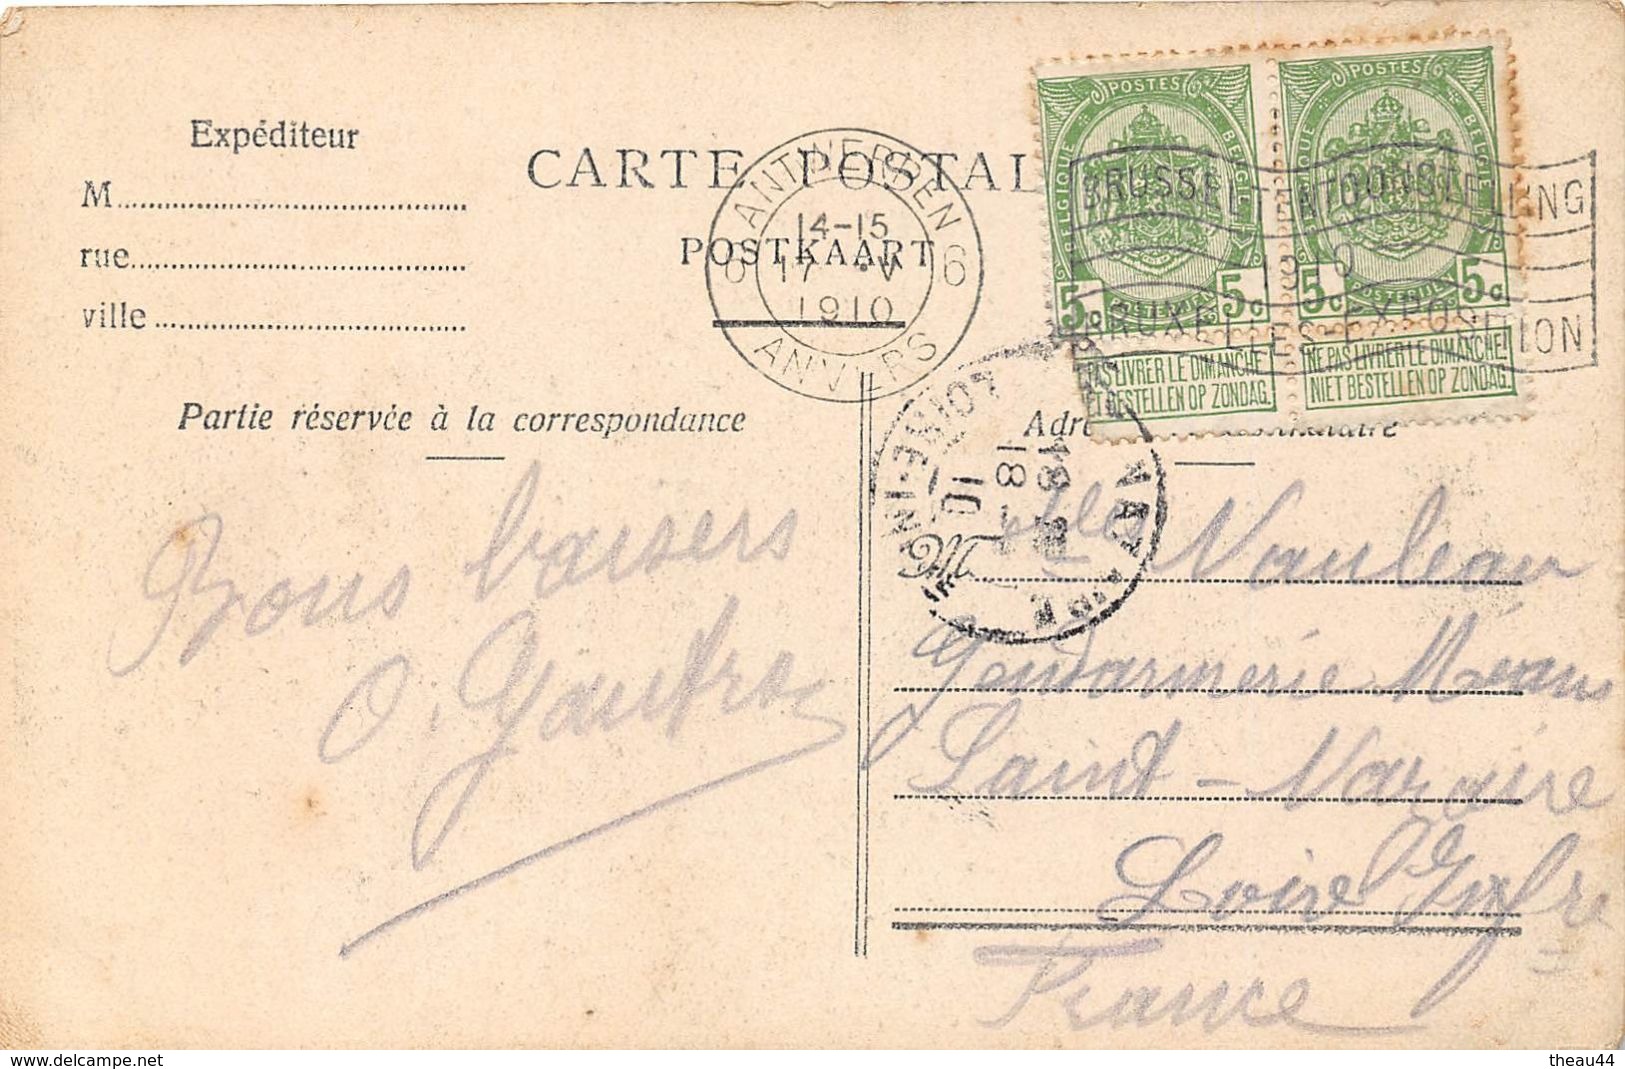 Expéditeur
M
rue
ville
CARTE POSTAL
POSTKAART
ANTWERPEN
14-15
17 V
1910
6 6
ANVERS
POSTES
BELGIQUE BELGIË
5c 5c
POSTERIJEN
NE PAS LIVRER LE DIMANCHE
NIET BESTELLEN OP ZONDAG.
POSTES
BELGIQUE BELGIË
5c 5c
POSTERIJEN
NE PAS LIVRER LE DIMANCHE!
NIET BESTELLEN OP ZONDAG.
BRUSSEL-TENTOONSTELLING
1910
BRUXELLES-EXPOSITION
Partie réservée à la correspondance
LOIRE-INF
18
10
Bons baisers
Melles Nauleau
Gendarmerie Méans
Saint-Nazaire
Loire Infre
France
www.delcampe.net
theau44